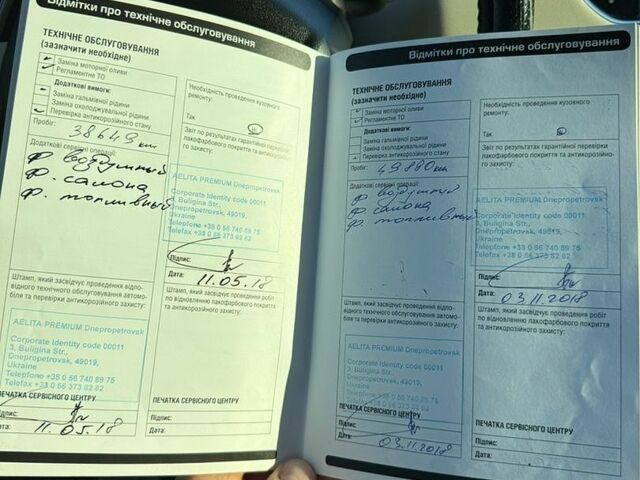 Відмітки про технічне обслуговування
ТЕХНІЧНЕ ОБСЛУГОВУВАННЯ
(зазначити необхідне)
Заміна моторної оливи
Регламентне ТО
Додаткові вимоги:
Заміна гальмівної рідини
Заміна охолоджувальної рідини
Перевірка антикорозійного стану
Пробіг: 38649 км
Додаткові сервісні операції:
ф. воздушный
ф. салона
ф. топливный
Штамп, який засвідчує проведення відпо-
відного технічного обслуговування автомо-
біля та перевірки антикорозійного захисту:
AELITA PREMIUM Dnepropetrovsk
Corporate Identity code 00011
3, Buligina Str.,
Dnepropetrovsk, 49019,
Ukraine
Telepfone +38 0 56 740 89 75
Telefax +38 0 56 373 82 62
ПЕЧАТКА СЕРВІСНОГО ЦЕНТРУ
Підпис:
Дата: 11.05.18
Необхідність проведення кузовного
ремонту:
Так
Звіт по результатах гарантійної перевірки
лакофарбового покриття та антикорозійно-
го захисту:
AELITA PREMIUM Dnepropetrovsk
Corporate Identity code 00011
3, Buligina Str.,
Dnepropetrovsk, 49019,
Ukraine
Telepfone +38 0 56 740 89 75
Telefax +38 0 56 373 82 62
Підпис:
Дата: 11.05.18
Штамп, який засвідчує проведення робіт
по відновленню лакофарбового покриття
та антикорозійного захисту:
Підпис:
Дата:
Відмітки про технічне обслуговування
ТЕХНІЧНЕ ОБСЛУГОВУВАННЯ
(зазначити необхідне)
Заміна моторної оливи
Регламентне ТО
Додаткові вимоги:
Заміна гальмівної рідини
Заміна охолоджувальної рідини
Перевірка антикорозійного стану
Пробіг: 49880 км
Додаткові сервісні операції:
ф воздушный
ф салона
ф. топливный
Штамп, який засвідчує проведення відпо-
відного технічного обслуговування автомо-
біля та перевірки антикорозійного захисту:
AELITA PREMIUM Dnepropetrovsk
Corporate Identity code 00011
3, Buligina Str.,
Dnepropetrovsk, 49019,
Ukraine
Telepfone +38 0 56 740 89 75
Telefax +38 0 56 373 82 62
ПЕЧАТКА СЕРВІСНОГО ЦЕНТРУ
Підпис:
Дата: 03.11.2018
Необхідність проведення кузовного
ремонту:
Так
Звіт по результатах гарантійної перевірки
лакофарбового покриття та антикорозійно-
го захисту:
AELITA PREMIUM Dnepropetrovsk
Corporate Identity code 00011
3, Buligina Str.,
Dnepropetrovsk, 49019,
Ukraine
Telepfone +38 0 56 740 89 75
Telefax +38 0 56 373 82 62
Підпис:
Дата: 03.11.2018
Штамп, який засвідчує проведення робіт
по відновленню лакофарбового покриття
та антикорозійного захисту:
Підпис:
Дата: